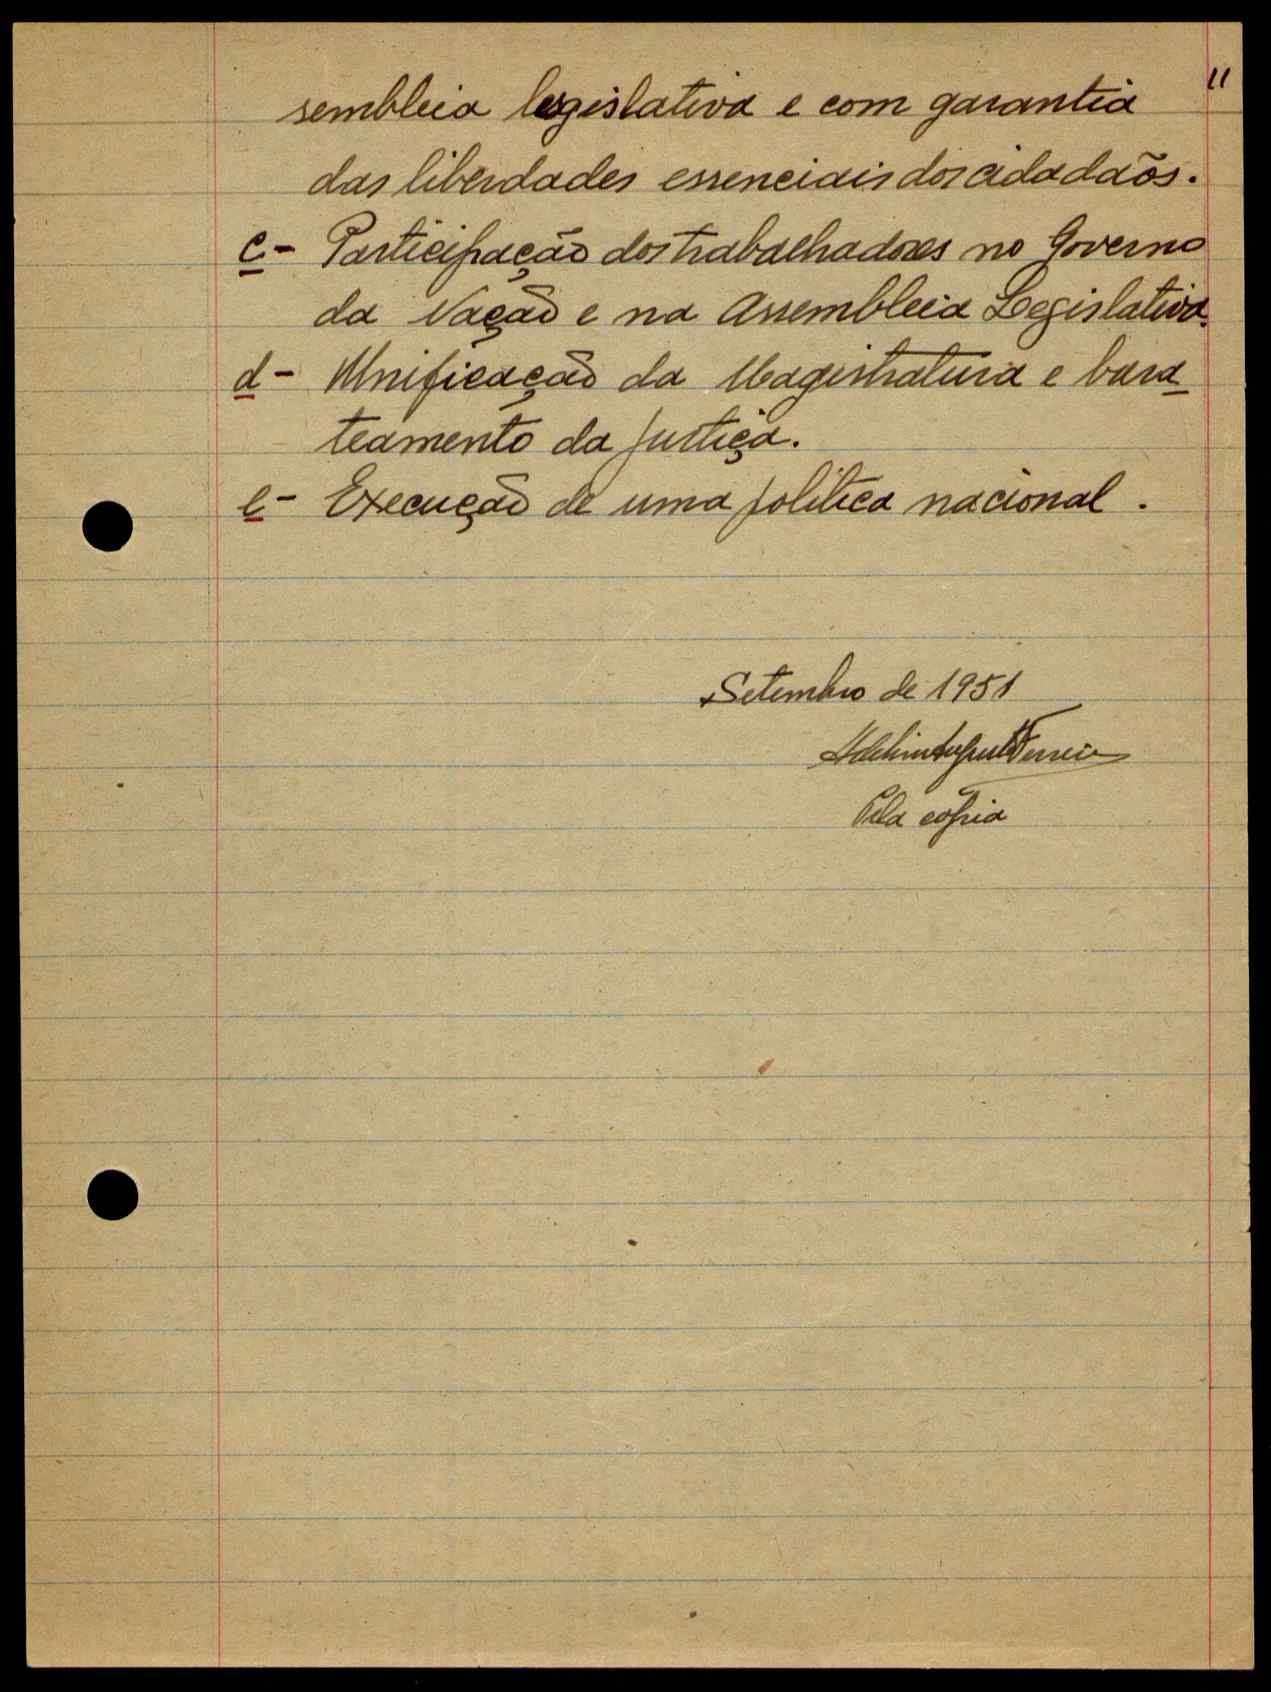 11
sembleia legislativa e com garantia
das liberdades essenciais dos cidadãos.
c- Participação dos trabalhadores no Governo
da Nação e na Assembleia Legislativa.
d- Unificação da Magistratura e bara-
teamento da justiça.
e- Execução de uma política nacional.
Setembro de 1951
Ferreira
Pela cópia